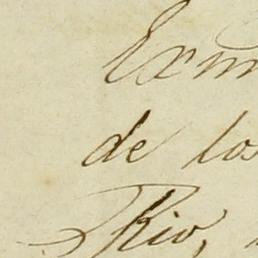 Exm
de los
Rio,